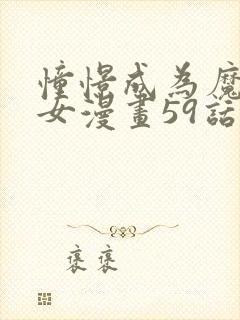 憧憬成為魔
女漫畫59話
褒褒